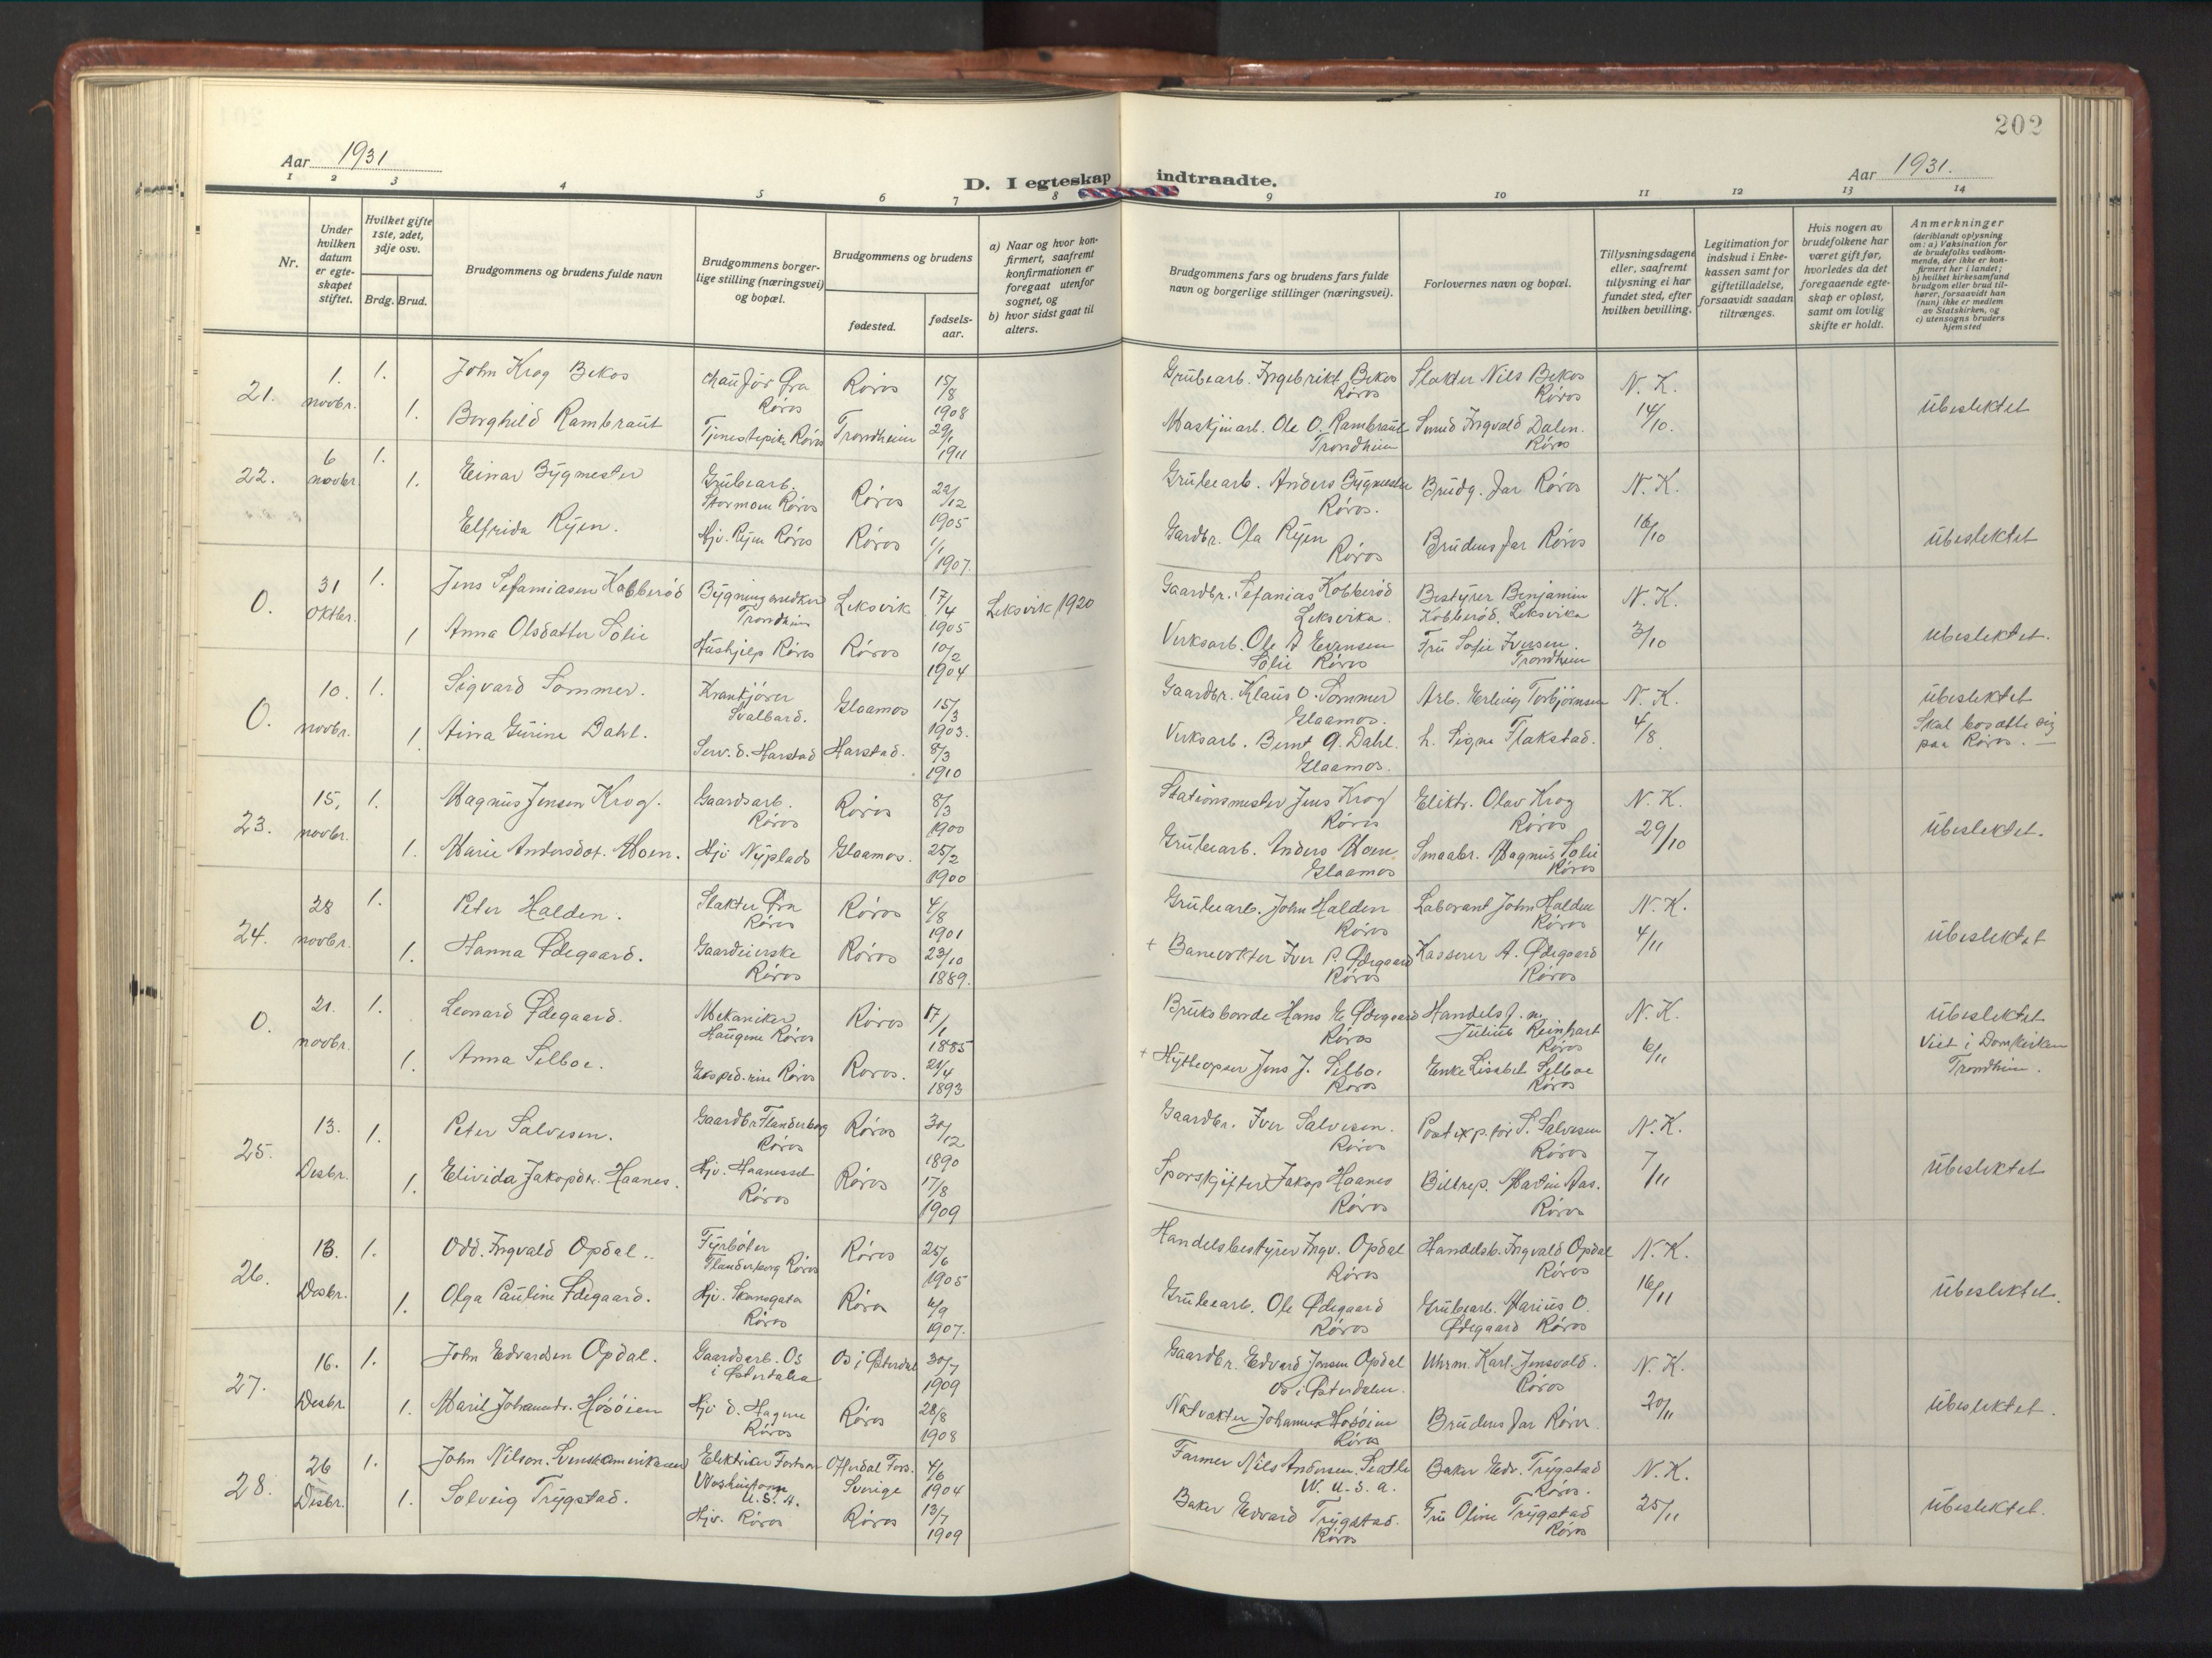 202
Aar 1931
Aar 1931.
D. I egteskap indtraadte.
1 2 3 4 5 6 7 8 9 10 11 12 13 14
Nr.
Under hvilken datum er egte-skapet stiftet.
Hvilket gifte 1ste, 2det, 3dje osv.
Brdg. Brud.
Brudgommens og brudens fulde navn
Brudgommens borger-lige stilling (næringsvei) og bopæl.
Brudgommens og brudens
fødested.
fødsels-aar.
a) Naar og hvor kon-firmert, saafremt konfirmationen er foregaat utenfor sognet, og
b) hvor sidst gaat til alters.
Brudgommens fars og brudens fars fulde navn og borgerlige stillinger (næringsvei).
Forlovernes navn og bopæl.
Tillysningsdagene eller, saafremt tillysning ei har fundet sted, efter hvilken bevilling.
Legitimation for indskud i Enke-kassen samt for giftetilladelse, forsaavidt saadan tiltrænges.
Hvis nogen av brudefolkene har været gift før, hvorledes da det foregaaende egte-skap er opløst, samt om lovlig skifte er holdt.
Anmerkninger
(deriblandt oplysning om: a) Vaksination for de brudefolks vedkom-mende, der ikke er kon-firmert her i landet; b) hvilket kirkesamfund brudgom eller brud til-hører, forsaavidt han (hun) ikke er medlem av Statskirken, og c) utensogns bruders hjemsted
21. 1. novbr. 1. John Krog Bekos chaufför Øra Røros Røros 15/8 1908 Grubearb. Ingebrikt Bekos Røros Slakter Nils Bekos Røros N. K.
1. Borghild Rambraut Tjenestepike Røros Trondheim 29/1 1911 Maskinarb. Ole O. Rambraut Trondheim Smed Ingvald Dalen. Røros 14/10. Übeslektet
22. 6 novbr. 1. Einar Bygmester Grubearb. Stormoen Røros Røros 22/12 1905 Grubearb. Anders Bygmester Røros. Brudg. far Røros N. K.
1. Elfrida Ryen. Hjv. Ryen Røros Røros 1/1 1907. Gardbr. Ola Ryen Røros Brudens far Røros 16/10 übeslektet
0. 31 Oktbr. 1. Jens Sefaniasen Kobberød Bygningssnedker Trondheim Leksvik 17/4 1905 Leksvik 1920 Gaardbr. Sefanias Kobberød Leksvika. Bestyrer Benjamin Kobberød, Leksvika N. K.
1 Anna Olsdatter Solie Hushjelp Røros Røros 10/2 1904 Verksarb. Ole A Evensen Solie Røros Fru Sofie Iversen. Trondheim 3/10 übeslektet.
0. 10. novbr. 1. Sigvard Sommer. Krankjører Svalbard. Glaamos 15/3 1903. Gaardbr. Klaus O. Sommer Glaamos. Arb. Erling Torbjörnsen N. K. übeslektet
1. Aina Gurine Dahl. Serv. d. Harstad Harstad. 8/3 1910 Verksarb. Bernt A. Dahl. Glaamos. L. Signe Flakstad. 4/8 Skal bosætte sig paa Røros. —
23. 15. novbr. 1. Magnus Jensen Krog. Gaardsarb. Røros Røros 8/3 1900 Stationsmester Jens Krog Røros Elektr. Olav Krog Røros N. K.
1. Marie Andersdat. Moen. Hjv Nyplads Glaamos. 25/2 1900 Grubearb. Anders Moen Glaamos Smaabr. Magnus Solie Røros 29/10 übeslektet.
24. 28 novbr. 1. Peter Halden. Slakter Øra Røros Røros 4/8 1901 Grubearb. John Halden Røros Laborant John Halden Røros N. K.
1. Hanna Ødegaard. Gaardeierske Røros Røros 23/10 1889. + Banevokter Iver P. Ødegaard Røros Kasserer A. Ødegaard Røros 4/11 übeslektet
0. 21. novbr. 1. Leonard Ødegaard. Mekaniker Haugene Røros Røros 17/1 1885 Bruksbonde Hans E Ødegaard Røros Handelsf. m. Julius Reinhart Røros N. K. übeslektet
1. Anna Selboe. Exsped.rise Røros Røros. 21/4 1893 + Hytteopser Jens J. Selboe Røros Enke Lisabet Selboe Røros 6/11 Viet i Domkirken Trondheim.
25. 13. Desbr. 1. Peter Salvesen. Gaardbr. Flanderborg Røros Røros 30/12 1890 Gaardbr. Iver Salvesen. Røros Postexp.tør S. Salvesen Røros N. K.
1. Elivida Jakopdtr. Haanes. Hjv. Haanesset Røros Røros 17/8 1909 Sporskifter Jakop Haanes Røros Biltrep. Martin Aas. Røros 7/11 übeslektet
26. 13. Desbr. 1. Odd. Ingvald Opdal.. Fyrbøter Flanderborg Røros Røros 25/6 1905 Handelsbestyrer Ingv. Opdal Røros Handelsb. Ingvald Opdal Røros N. K.
1. Olga Pauline Ødegaard. Hjv. Skansgata Røros Røros 4/9 1907. Grubearb. Ole Ødegaard Røros Grubearb. Marius O. Ødegaard Røros 16/11 übeslektet.
27. 16. Desbr. 1. John Edvardsen Opdal. Gaardsarb. Os i Østerdalen Os i Østerdal 30/7 1909 Gaardbr. Edvard Jensen Opdal Os i Østerdalen. Uhrm. Karl Jensvold. Røros N. K.
1. Marit Johannesdr. Hosöien Hjv d. Hagene Røros Røros 28/8 1908 Natvakter Johannes Hosöien Røros Brudens far Røros. 20/11 übeslektet.
28. 26 Desbr. 1. John Nilson. Svenskamerikaner Elektriker Washington U.S.A. Offerdal Fors. Sverige 4/6 1904 Farmer Nils Andersen Seatle W. U. S. A. Baker Edv. Trygstad Røros. N. K.
1. Solveig Trygstad. Hjv. Røros Røros 13/7 1909 Baker Edvard Trygstad. Røros Fru Oline Trygstad Røros 25/11 übeslektet.